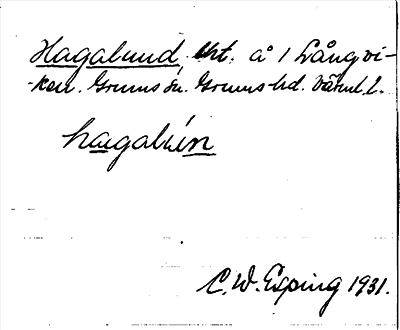 Hagalund, tht. å 1 Långvi-
-ken. Grums sn. Grums hd. Värml. l.
hagalún
C. W. Esping 1931.